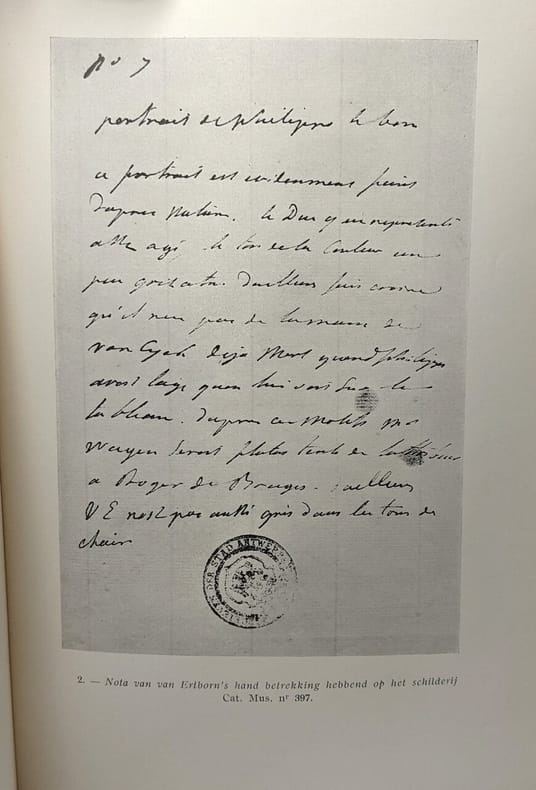 No 7
portrait de philippe le bon
ce portrait est evidemment peint
dapres Nature. le Duc y est representé
assez agé le ton de la Couleur un
peu grisatre. Dailleurs suis
qu'il nest pas de la main de
van Eyck deja Mort quand philippe
avait lage quon lui voit sur le
tableau. dapres ces Motifs Mr
Wagen serait plutot tenté de lattribuer
a Roger de Bruges. dailleurs
VE nest pas aussi gris dans les tons de
chair
DER STAD ANTWERPEN
2. — Nota van van Ertborn's hand betrekking hebbend op het schilderij
Cat. Mus. nr 397.